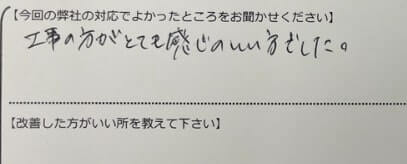 【今回の弊社の対応でよかったところをお聞かせください】
工事の方がとても感じのいい方でした。
【改善した方がいい所を教えて下さい】